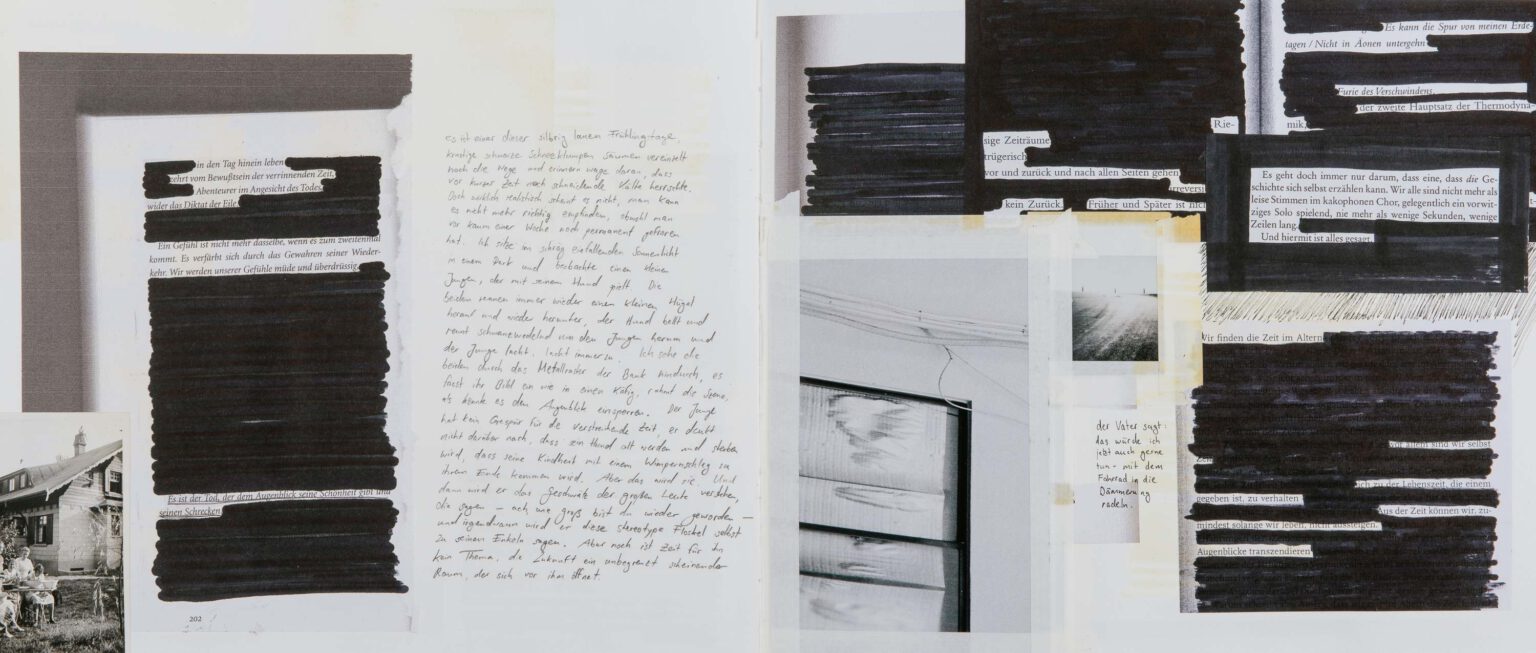 in den Tag hinein leben
kehrt vom Bewußtsein der verrinnenden Zeit,
Abenteurer im Angesicht des Todes,
wider das Diktat der Eile
Ein Gefühl ist nicht mehr dasselbe, wenn es zum zweitenmal
kommt. Es verfärbt sich durch das Gewahren seiner Wieder-
kehr. Wir werden unserer Gefühle müde und überdrüssig
Es ist der Tod, der dem Augenblick seine Schönheit gibt und
seinen Schrecken
202
es ist einer dieser silbrig lauen Frühlingstage,
krustige schwarze Schneeklumpen säumen vereinzelt
noch die Wege und erinnern vage daran, dass
vor kurzer Zeit noch schneidende Kälte herrschte.
Doch wirklich realistisch scheint es nicht, man kann
es nicht mehr richtig empfinden, obwohl man
vor kaum einer Woche noch permanent gefroren
hat. Ich sitze im schräg einfallenden Sonnenlicht
in einem Park und beobachte einen kleinen
Jungen, der mit seinem Hund spielt. Die
beiden rennen immer wieder einen kleinen Hügel
herauf und wieder herunter, der Hund bellt und
rennt schwanzwedelnd um den Jungen herum und
der Junge lacht. lacht immerzu. Ich sehe die
beiden durch das Metallraster der Bank hindurch, es
fasst ihr Bild ein wie in einen Käfig, rahmt die Szene,
als könnte es den Augenblick einsperren. Der Junge
hat kein Gespür für die verstreichende Zeit, er denkt
nicht darüber nach, dass sein Hund alt werden und sterben
wird, dass seine Kindheit mit einem Wimpernschlag zu
ihrem Ende kommen wird. Aber das wird sie. Und
dann wird er das Geschwätz der großen Leute verstehen,
die sagen – ach wie groß bist du wieder geworden –
und irgendwann wird er diese stereotype Floskel selbst
zu seinen Enkeln sagen. Aber noch ist Zeit für ihn
kein Thema, die Zukunft ein unbegrenzt scheinender
Raum, der sich vor ihm öffnet.
Es kann die Spur von meinen Erde-
tagen / Nicht in Äonen untergehn
Furie des Verschwindens
der zweite Hauptsatz der Thermodyna-
mik
Rie-
sige Zeiträume
trügerisch
vor und zurück und nach allen Seiten gehen
irrevers
kein Zurück. Früher und Später ist nich
Es geht doch immer nur darum, dass eine, dass die Ge-
schichte sich selbst erzählen kann. Wir alle sind nicht mehr als
leise Stimmen im kakophonen Chor, gelegentlich ein vorwit-
ziges Solo spielend, nie mehr als wenige Sekunden, wenige
Zeilen lang.
Und hiermit ist alles gesagt.
der Vater sagt:
das würde ich
jetzt auch gerne
tun – mit dem
Fahrrad in die
Dämmerung
radeln.
Wir finden die Zeit im Altern
vor allem sind wir selbst
Zeit
ich zu der Lebenszeit, die einem
gegeben ist, zu verhalten
Aus der Zeit können wir, zu-
mindest solange wir leben, nicht aussteigen.
Augenblicke transzendieren